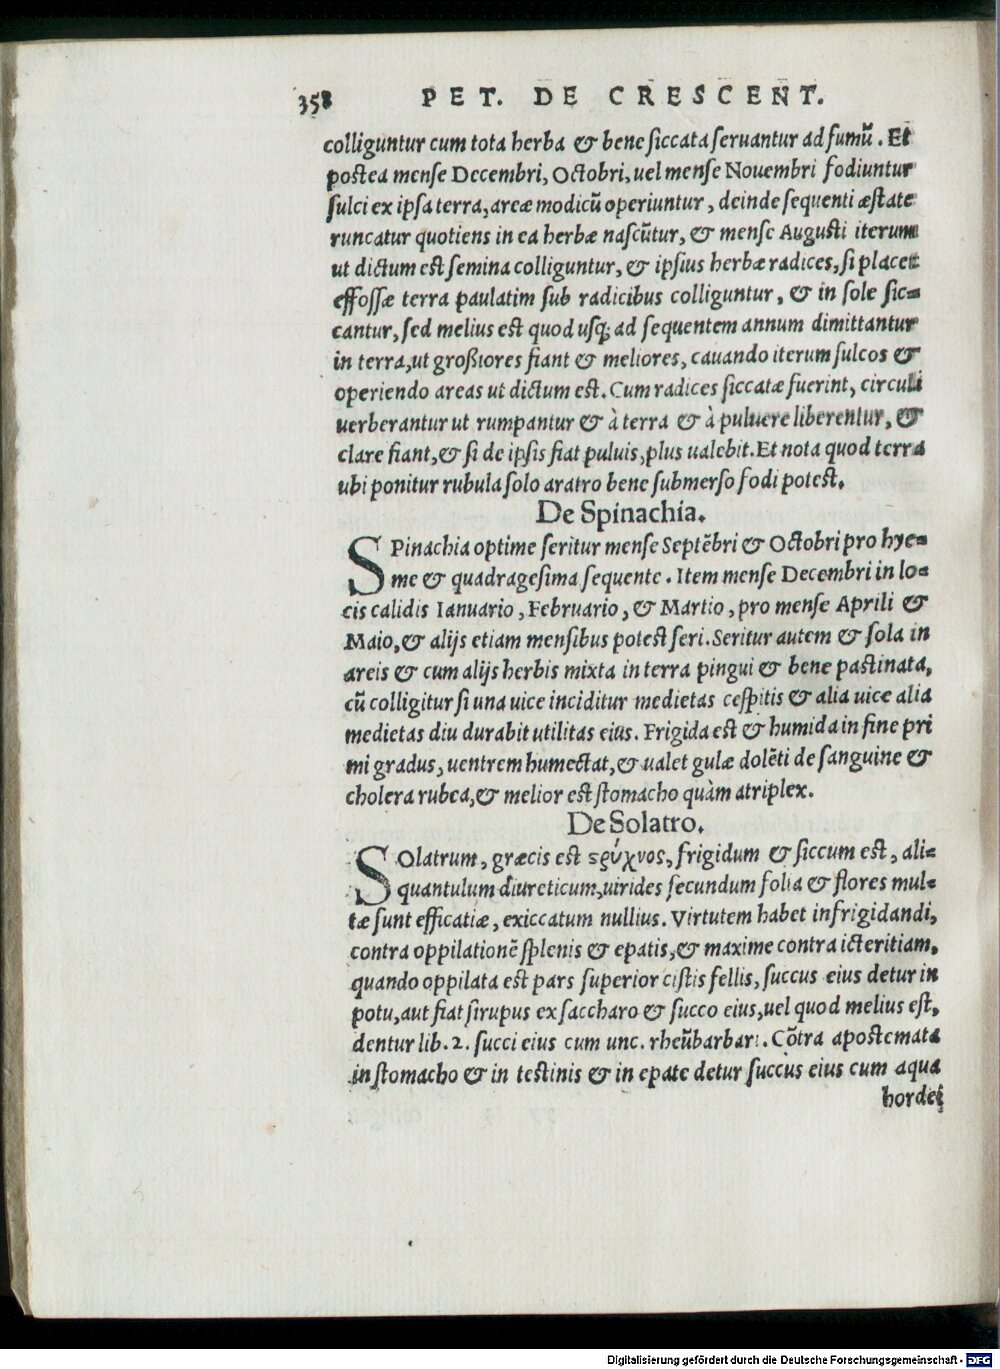 358 PET. DE CRESCENT.
colliguntur cum tota herba & bene siccata seruantur ad fumū. Et
postea mense Decembri, Octobri, uel mense Nouembri fodiuntur
sulci ex ipsa terra, areæ modicū operiuntur, deinde sequenti æstate
runcatur quotiens in ea herbæ nascūtur, & mense Augusti iterum
ut dictum est semina colliguntur, & ipsius herbæ radices, si placet
effossæ terra paulatim sub radicibus colliguntur, & in sole sic=
cantur, sed melius est quod usq; ad sequentem annum dimittantur
in terra, ut großiores fiant & meliores, cauando iterum sulcos &
operiendo areas ut dictum est. Cum radices siccatæ fuerint, circuli
uerberantur ut rumpantur & à terra & à puluere liberentur, &
clare fiant, & si de ipsis fiat puluis, plus ualebit. Et nota quod terra
ubi ponitur rubula solo aratro bene submerso fodi potest.
De Spinachia.
SPinachia optime seritur mense Septēbri & Octobri pro hye=
me & quadragesima sequente. Item mense Decembri in lo=
cis calidis Ianuario, Februario, & Martio, pro mense Aprili &
Maio, & alijs etiam mensibus potest seri. Seritur autem & sola in
areis & cum alijs herbis mixta in terra pingui & bene pastinata,
cū colligitur si una uice inciditur medietas cespitis & alia uice alia
medietas diu durabit utilitas eius. Frigida est & humida in fine pri
mi gradus, uentrem humectat, & ualet gulæ dolēti de sanguine &
cholera rubea, & melior est stomacho quàm atriplex.
De Solatro.
SOlatrum, græcis est ςρύχνος, frigidum & siccum est, ali=
quantulum diureticum, uirides secundum folia & flores mul=
tæ sunt efficatiæ, exiccatum nullius. Virtutem habet infrigidandi,
contra oppilationē splenis & epatis, & maxime contra icteritiam,
quando oppilata est pars superior cistis fellis, succus eius detur in
potu, aut fiat sirupus ex saccharo & succo eius, uel quod melius est,
dentur lib. 2. succi eius cum unc. rheūbarbari. Cōtra apostemata
in stomacho & in testinis & in epate detur succus eius cum aqua
hordei
Digitalisierung gefördert durch die Deutsche Forschungsgemeinschaft - DFG